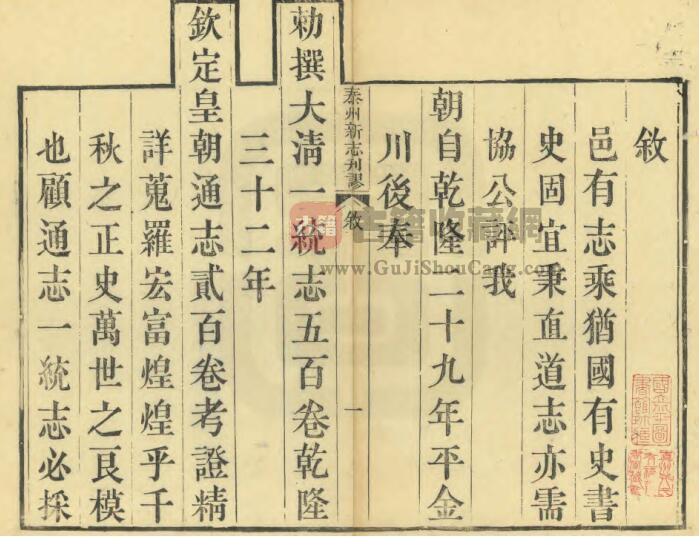 敘
邑有志乘猶國有史書
史固宜秉直道志亦需
協公評我
朝自乾隆二十九年平金
川後奉
泰州新志刊謬
敘
一
勅撰大清一統志五百卷乾隆
三十二年
欽定皇朝通志貳百卷考證精
詳蒐羅宏富煌煌乎千
秋之正史萬世之良模
也顧通志一統志必採
古籍收藏網
www.GuJiShouCang.com